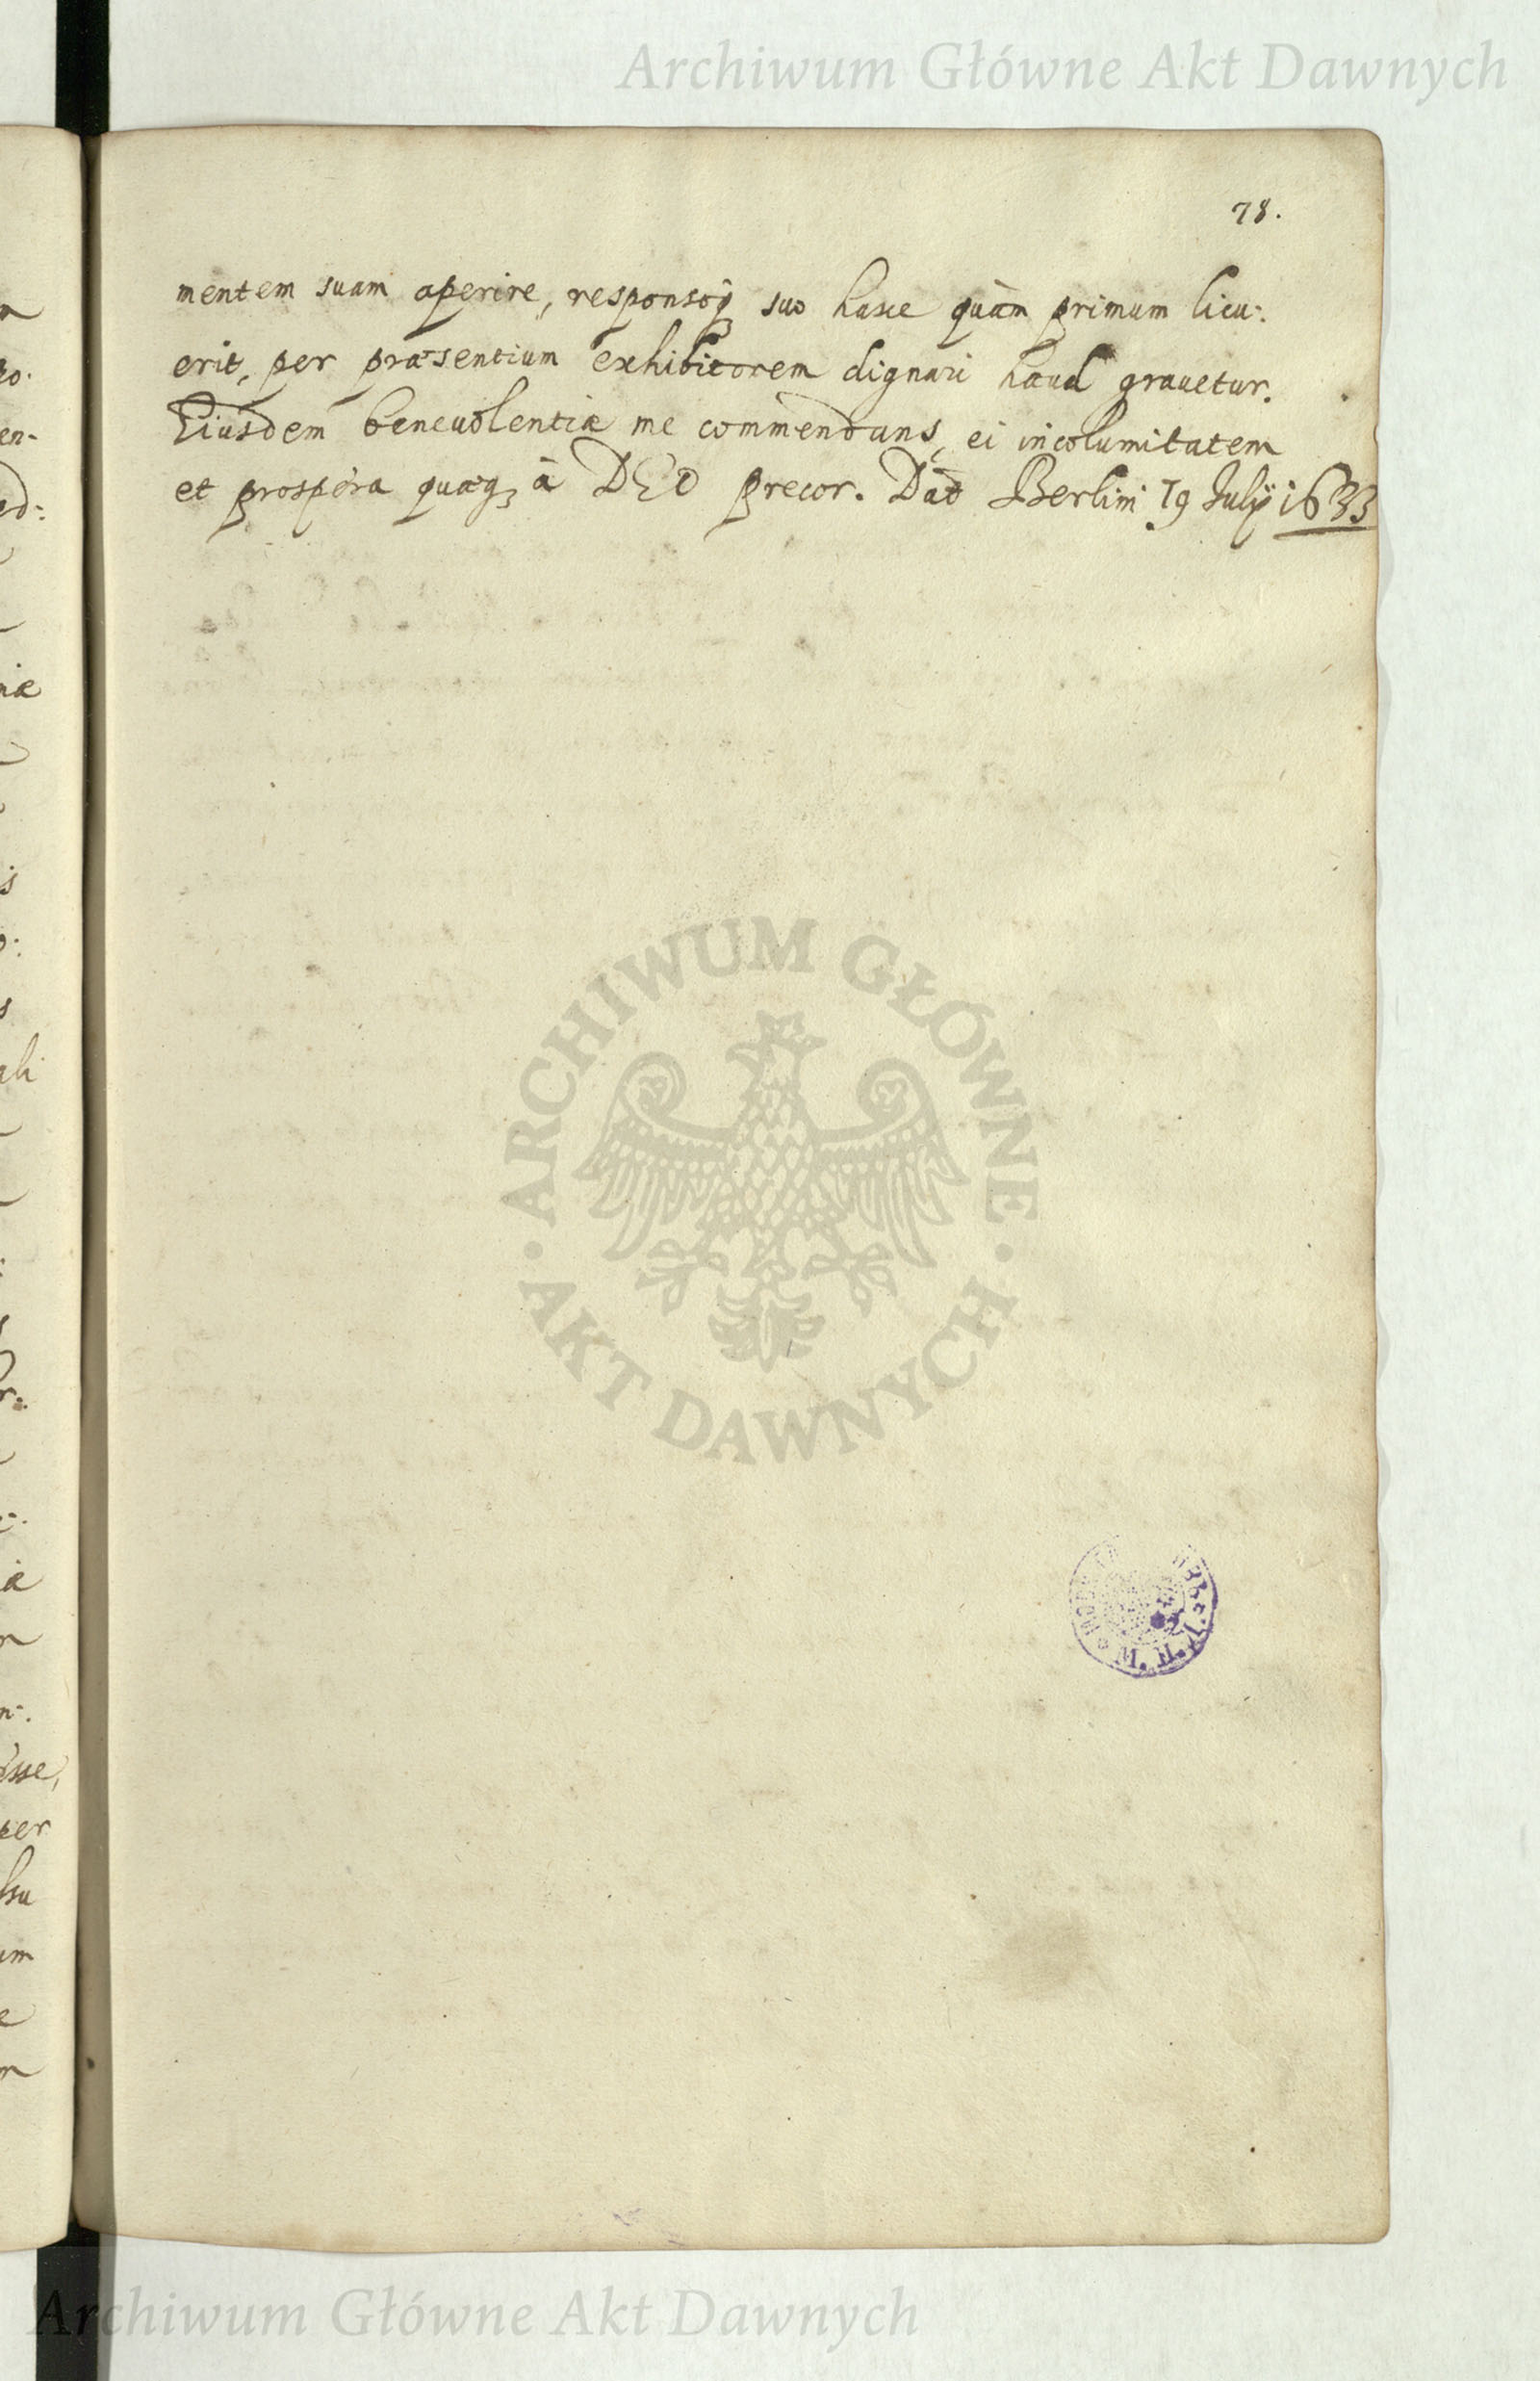 Archiwum Główne Akt Dawnych
78.
mentem suam aperire, responsoq3 suo hasce quàm primum licu-:
erit, per præsentium exhibitorem dignari haud grauetur.
Eiusdem beneuolentiæ me commendans, ei incolumitatem
et prospera quæq3 à DEO precor. Dat Berlini 19 Julij 1633
ARCHIWUM GŁÓWNE
AKT DAWNYCH
Archiwum Główne Akt Dawnych